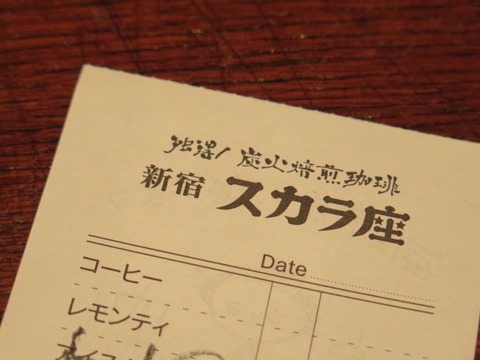 独得! 炭火焙煎珈琲
新宿 スカラ座
Date
コーヒー
レモンティ
アイス